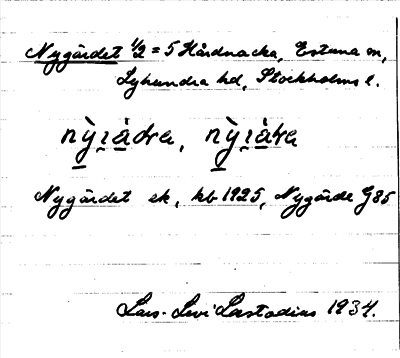 Nygärdet 1/2 = 5 Hårdnacka, Estuna sn,
Lyhundra hd, Stockholms l.
nỳɪàdra, nỳɪàra
Nygärdet ek, kb 1925, Nygärde G85
Lars-Levi Læstadius 1934.